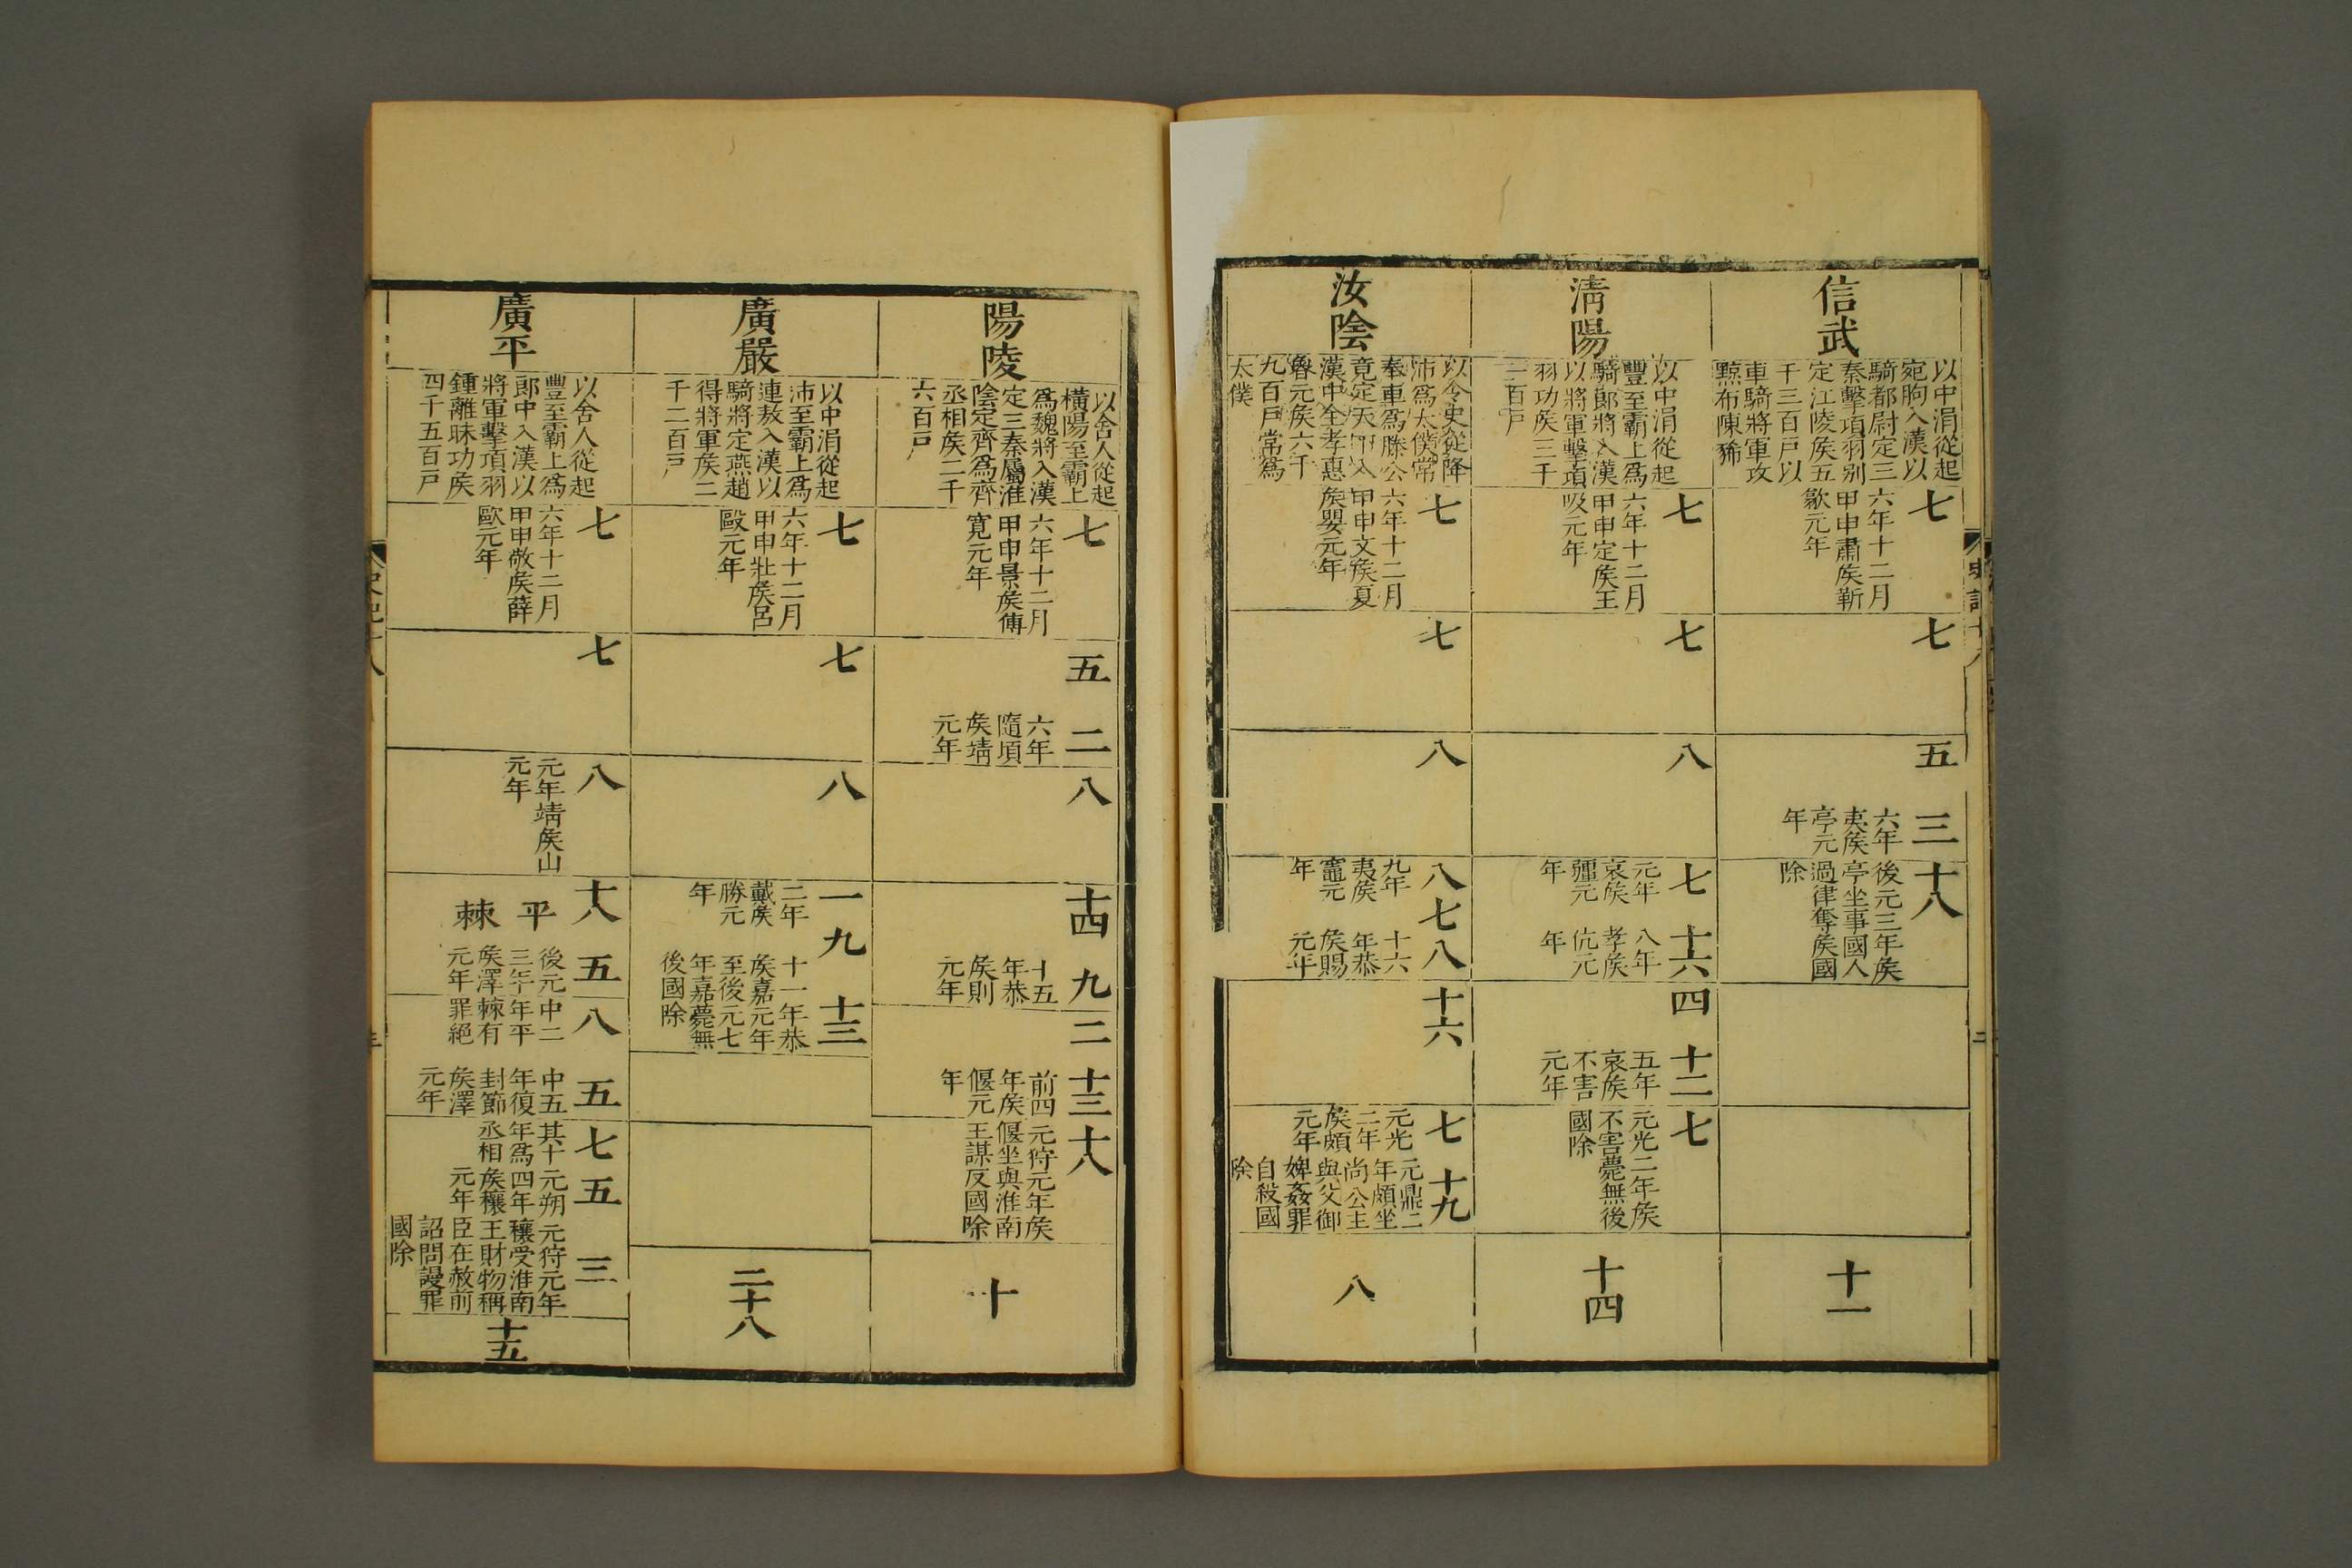 信武
以中涓從起
宛朐入漢以
騎都尉定三
秦擊項羽别
定江陵矦五
千三百戸以
車騎將軍攻
黥布陳豨
七
六年十二月
甲申肅矦靳
歙元年
七
五
三
六年
夷矦
亭元
年
十八
後元三年矦
亭坐事國人
過律奪矦國
除
十一
清陽
以中涓從起
豐至霸上爲
騎郎將入漢
以將軍擊項
羽功矦三千
一百戸
七
六年十二月
甲申定矦王
吸元年
七
八
七
元年
哀矦
疆元
年
十六
八年
孝矦
伉元
年
四
十二
五年
哀矦
不害
元年
七
元光二年矦
不害薨無後
國除
十四
汝陰
以令史從降
沛爲太僕常
奉車爲滕公
竟定天下入
漢中全孝惠
魯元矦六千
九百戸常爲
太僕
七
六年十二月
甲申文矦夏
矦嬰元年
七
八
八
九年
夷矦
竈元
年
七
八
十六
年恭
矦賜
元年
十六
七
元光
二年
矦頗
元年
十九
元鼎二
年頗坐
尚公主
與父御
婢姦罪
自殺國
除
八
陽陵
以舍人從起
橫陽至霸上
爲魏將入漢
定三秦屬淮
陰定齊爲齊
丞相矦二千
六百戸
七
六年十二月
甲申景矦傅
寛元年
五
二
六年
隨頃
矦靖
元年
八
十四
九
十五
年恭
矦則
元年
二
十三
前四
年矦
偃元
年
十八
元狩元年矦
偃坐與淮南
王謀反國除
十
廣嚴
以中涓從起
沛至霸上爲
連敖入漢以
騎將定燕趙
得將軍矦二
千二百戸
七
六年十二月
甲申壯矦呂
毆元年
七
八
一
二年
戴矦
勝元
年
九
十三
十一年恭
矦嘉元年
至後元七
年嘉薨無
後國除
二十八
廣平
以舍人從起
豐至霸上爲
郎中入漢以
將軍擊項羽
鍾離眛功矦
四千五百戸
七
六年十二月
甲申敬矦薛
歐元年
七
八
元年靖矦山
元年
十八
平
棘
五
後元
三年
矦澤
元年
八
中二
年平
棘有
罪絕
五
中五
年復
封節
矦澤
元年
七
其十
年爲
丞相
五
元朔
四年
矦穰
元年
三
元狩元年
穰受淮南
王財物稱
臣在赦前
詔問謾罪
國除
十五